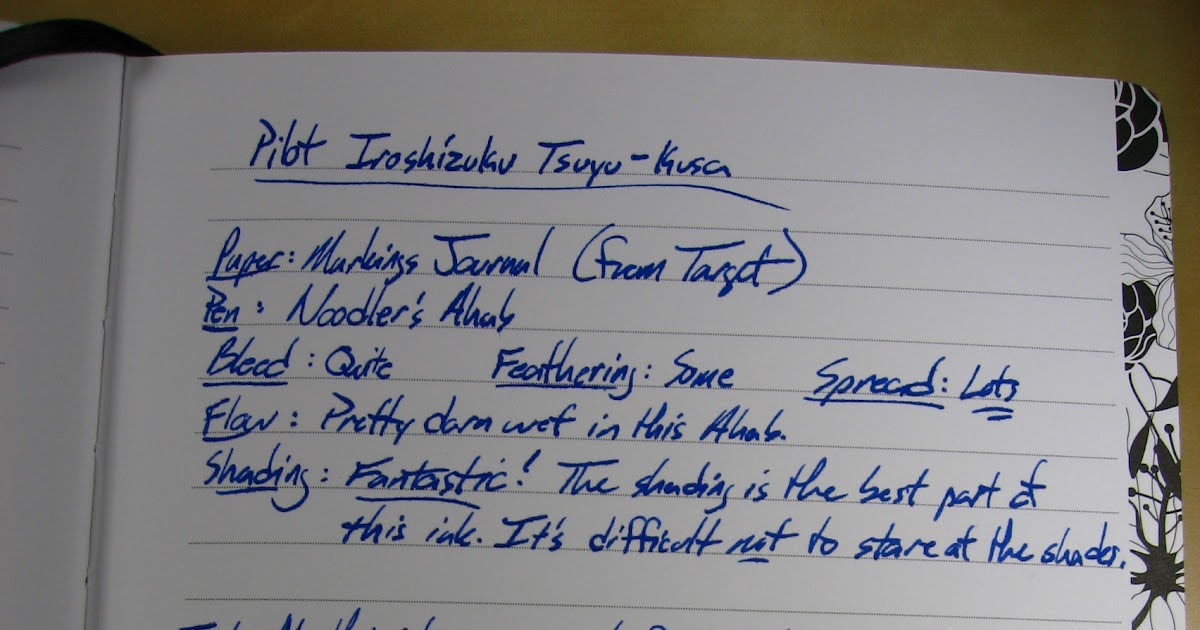 Pilot Iroshizuku Tsuyu-Kusa
Paper: Markings Journal (from Target)
Pen: Noodler's Ahab
Bleed: Quite Feathering: Some Spread: Lots
Flow: Pretty darn wet in this Ahab.
Shading: Fantastic! The shading is the best part of
this ink. It's difficult not to stare at the shades.